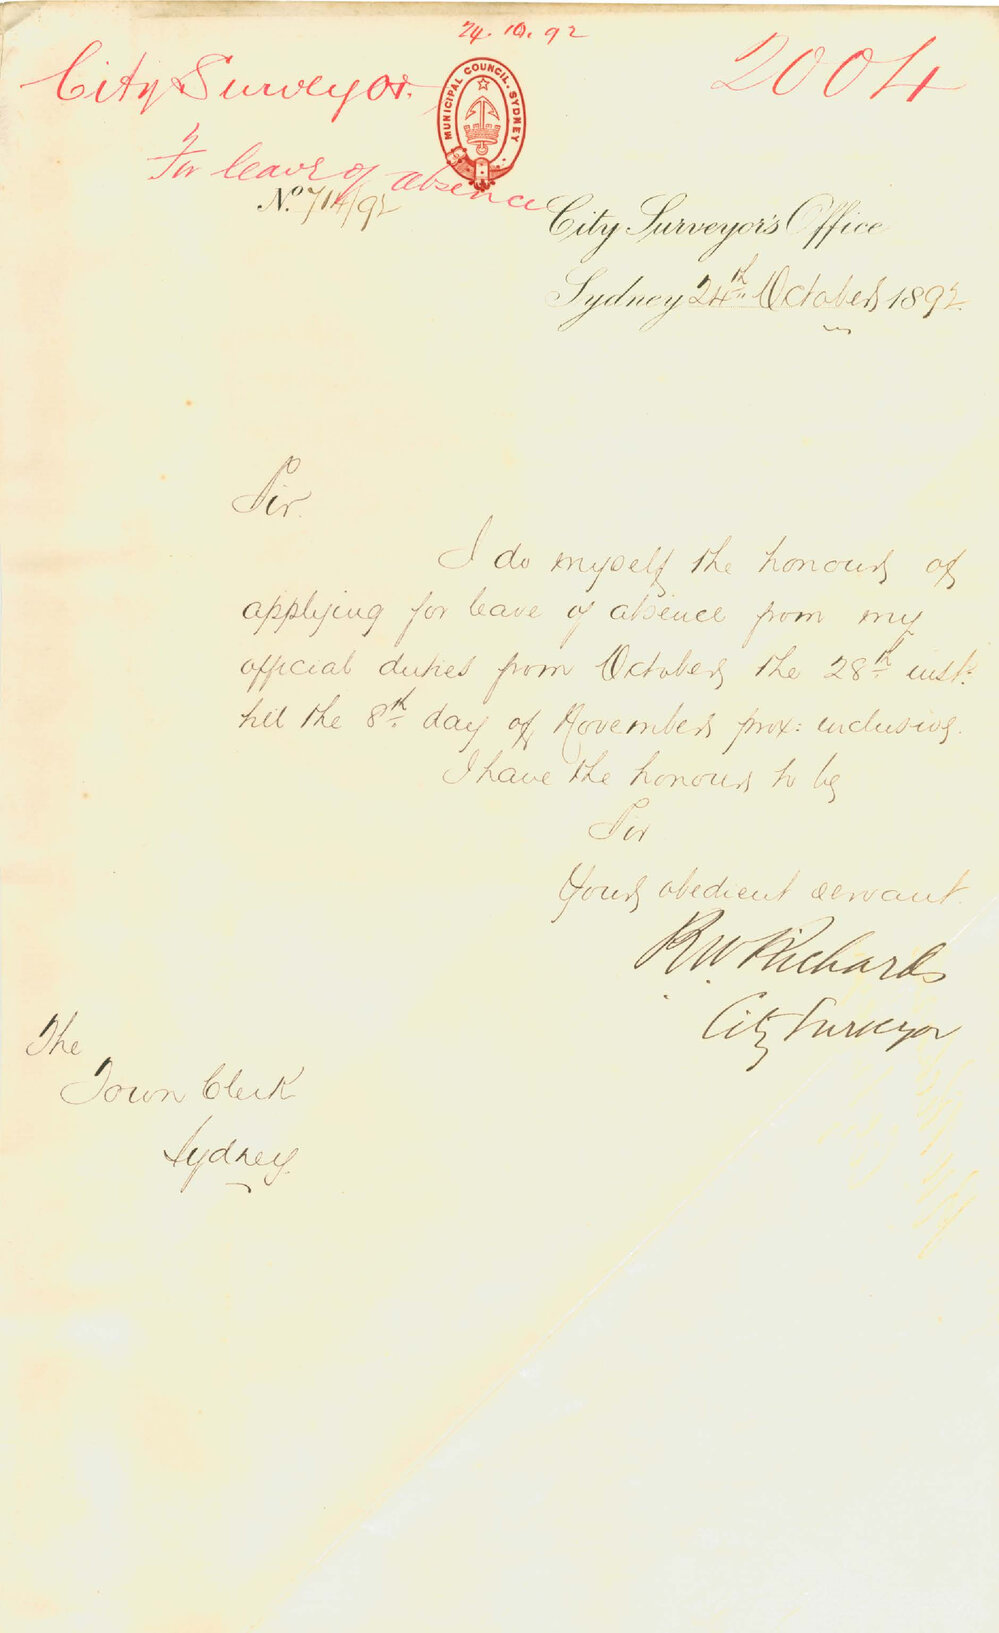 24.10.92
City Surveyor.
2004
MUNICIPAL COUNCIL. SYDNEY
For leave of absence
No. 714/92
City Surveyor's Office
Sydney 24th October 1892.
Sir.
I do myself the honour of
applying for leave of absence from my
official duties from October the 28th inst:
till the 8th day of November prox: inclusive.
I have the honour to be
Sir
Your obedient servant.
R W Richards
City Surveyor
The
Town Clerk
Sydney.